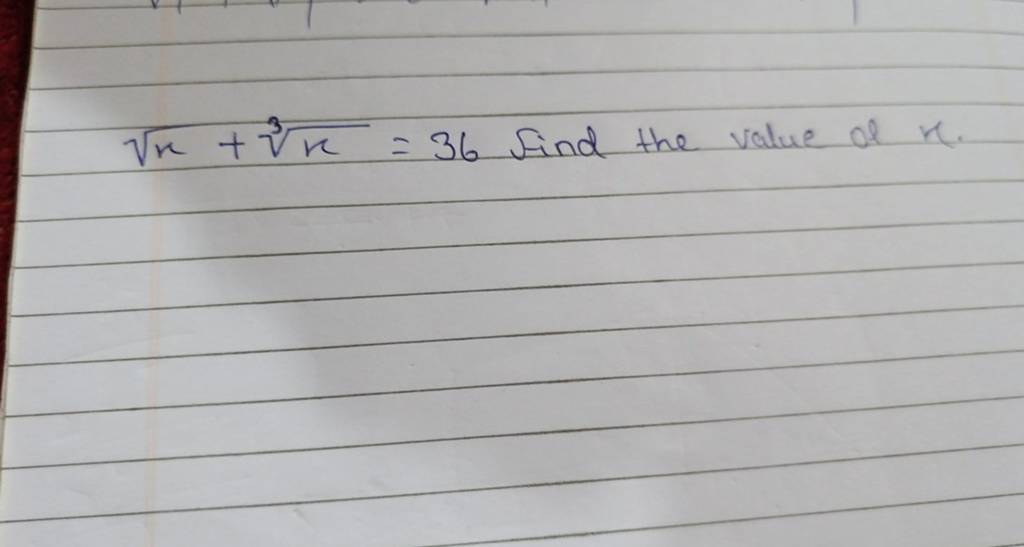 √x + ∛x = 36 find the value of x.